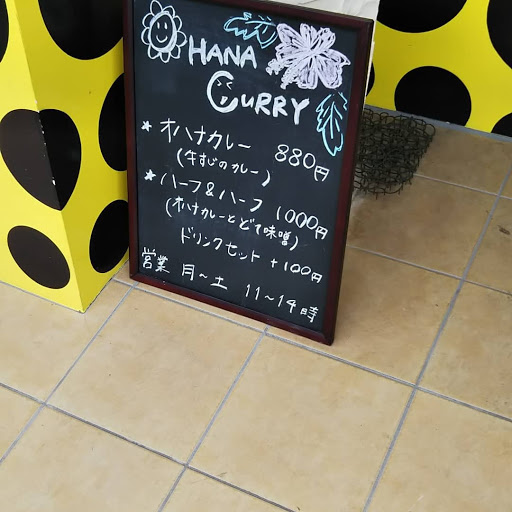 OHANA
CURRY
★ オハナカレー 880円
(牛すじのカレー)
★ ハーフ&ハーフ 1000円
(オハナカレーとどて味噌)
ドリンクセット +100円
営業 月〜土 11〜14時